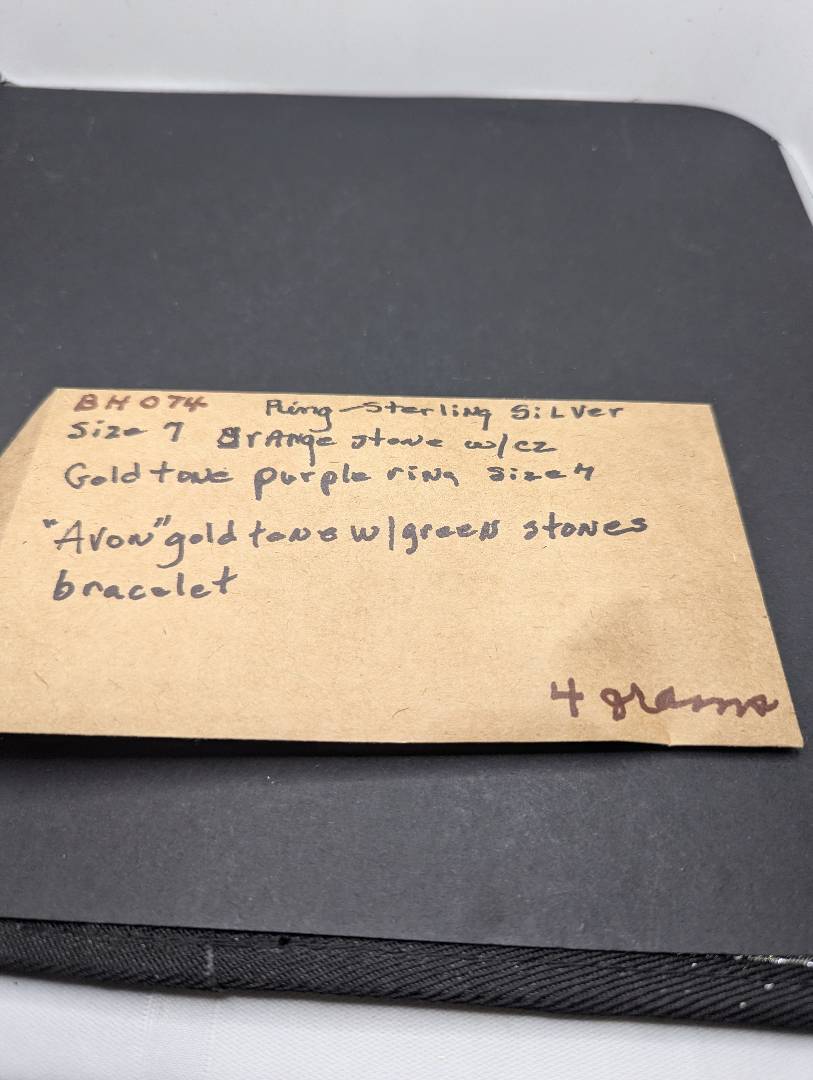 BH074 Ring-Sterling SiLVer
Size 7 Orange stone w/cz
Gold tone purple ring Size 7
"Avon" gold tone w/green stones
bracelet
4 grams